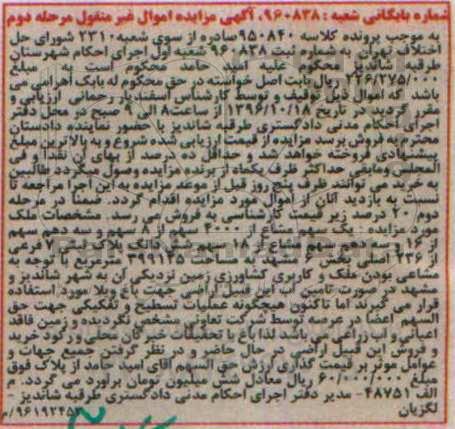 شماره بایگانی شعبه : ۹۶۰۸۳۸، آگهی مزایده اموال غیر منقول مرحله دوم
به موجب پرونده کلاسه ۹۵۰۸۴۰صادره از سوی شعبه۲۳۱۰ شورای حل
اختلاف تهران به شماره ثبت ۹۶۰۸۳۸ شعبه اول اجرای احکام شهرستان
طرقبه شاندیز محکوم علیه امید حامد محکوم است به مبلغ
ریال بابت اصل خواسته در حق محکوم له بابک اهرابی می
باشد که اموال ذیل توقیف و توسط کارشناس اسفندیار رحمانی ارزیابی و
مقرر گردید در تاریخ ۱۳۹۶/۱۰/۱۸ از ساعت۸ الی ۹ صبح در محل دفتر
اجرای احکام مدنی دادگستری طرقبه شاندیز با حضور نماینده دادستان
محترم به فروش برسد مزایده از قیمت ارزیابی شده شروع و به بالاترین مبلغ
پیشنهادی فروخته خواهد شد و حداقل ده درصد از بهای آن نقدا و فی
المجلس ومابقی حداکثر ظرف یکماه از برنده مزایده وصول میگردد طالبین
به خرید می توانند ظرف پنج روز قبل از موعد مزایده به این اجرا مراجعه تا
نسبت به بازدید آنان از اموال مورد مزایده اقدام گردد. ضمنا در مرحله
دوم ۲۰ درصد زیر قیمت کارشناسی به فروش می رسد. مشخصات ملک
مورد مزایده : یک سهم مشاع از ۴۰۰۰ سهم از ۸ سهم و سه دهم سهم
از ۱۶ و سه دهم سهم مشاع از ۱۸ سهم شش دانگ پلاک ثبتی ۷ فرعی
از ۲۳۶ اصلی بخش ۶ مشهد به مساحت ۳۹۹۱۲۵ متر مربع با توجه به
مشاعی بودن ملک و کاربری کشاورزی زمین نزدیکی آن به شهر شاندیز و
مشهد در صورت تامین آب این قبیل اراضی جهت باغ ویلا مورد استفاده
قرار می گیرند اما تاکنون هیچگونه عملیات تسطیح و تفکیکی جهت حق
السهم اعضا در عرصه توسط شرکت تعاونی مشخص نگردیده و زمین فاقد
اعیانی و آب زراعی می باشد لذا باغ با تحقیقات خبرگان محلی و رکود خرید
و فروش این قبیل اراضی در حال حاضر و در نظر گرفتن جمیع جهات و
عوامل موثر بر قیمت گذاری ارزش حق السهم آقای امید حامد از پلاک فوق
مبلغ ۶۰/۰۰۰/۰۰۰ ریال معادل شش میلیون تومان برآورد می گردد. م
الف ۴۸۷۵۱- مدیر دفتر اجرای احکام مدنی دادگستری طرقبه شاندیز -
لگزیان